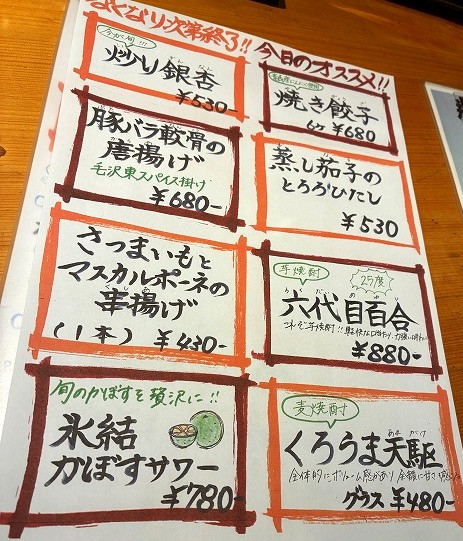 なくなり次第終了!! 今日のオススメ!!
今が旬!!!
炒り銀杏
¥530-
豚バラ軟骨の
唐揚げ
毛沢東スパイス掛け
¥680-
さつまいもと
マスカルポーネの
串揚げ
(1本) ¥430-
旬のかぼすを贅沢に!!
氷結
かぼすサワー
¥780-
焼き餃子
6ケ ¥680
蒸し茄子の
とろろひたし
¥530
芋焼酎
25度
六代目百合
¥880-
麦焼酎
くろうま天駆
あま がけ
全体的にボリューム感があり
グラス ¥480-